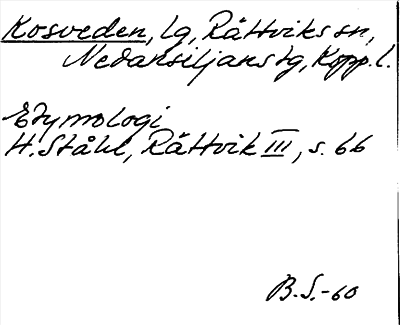 Kosveden, lg, Rättviks sn,
Nedansiljans tg, Kopp. l.
Etymologi
H. Ståhl, Rättvik III, s. 66
B.S.-60